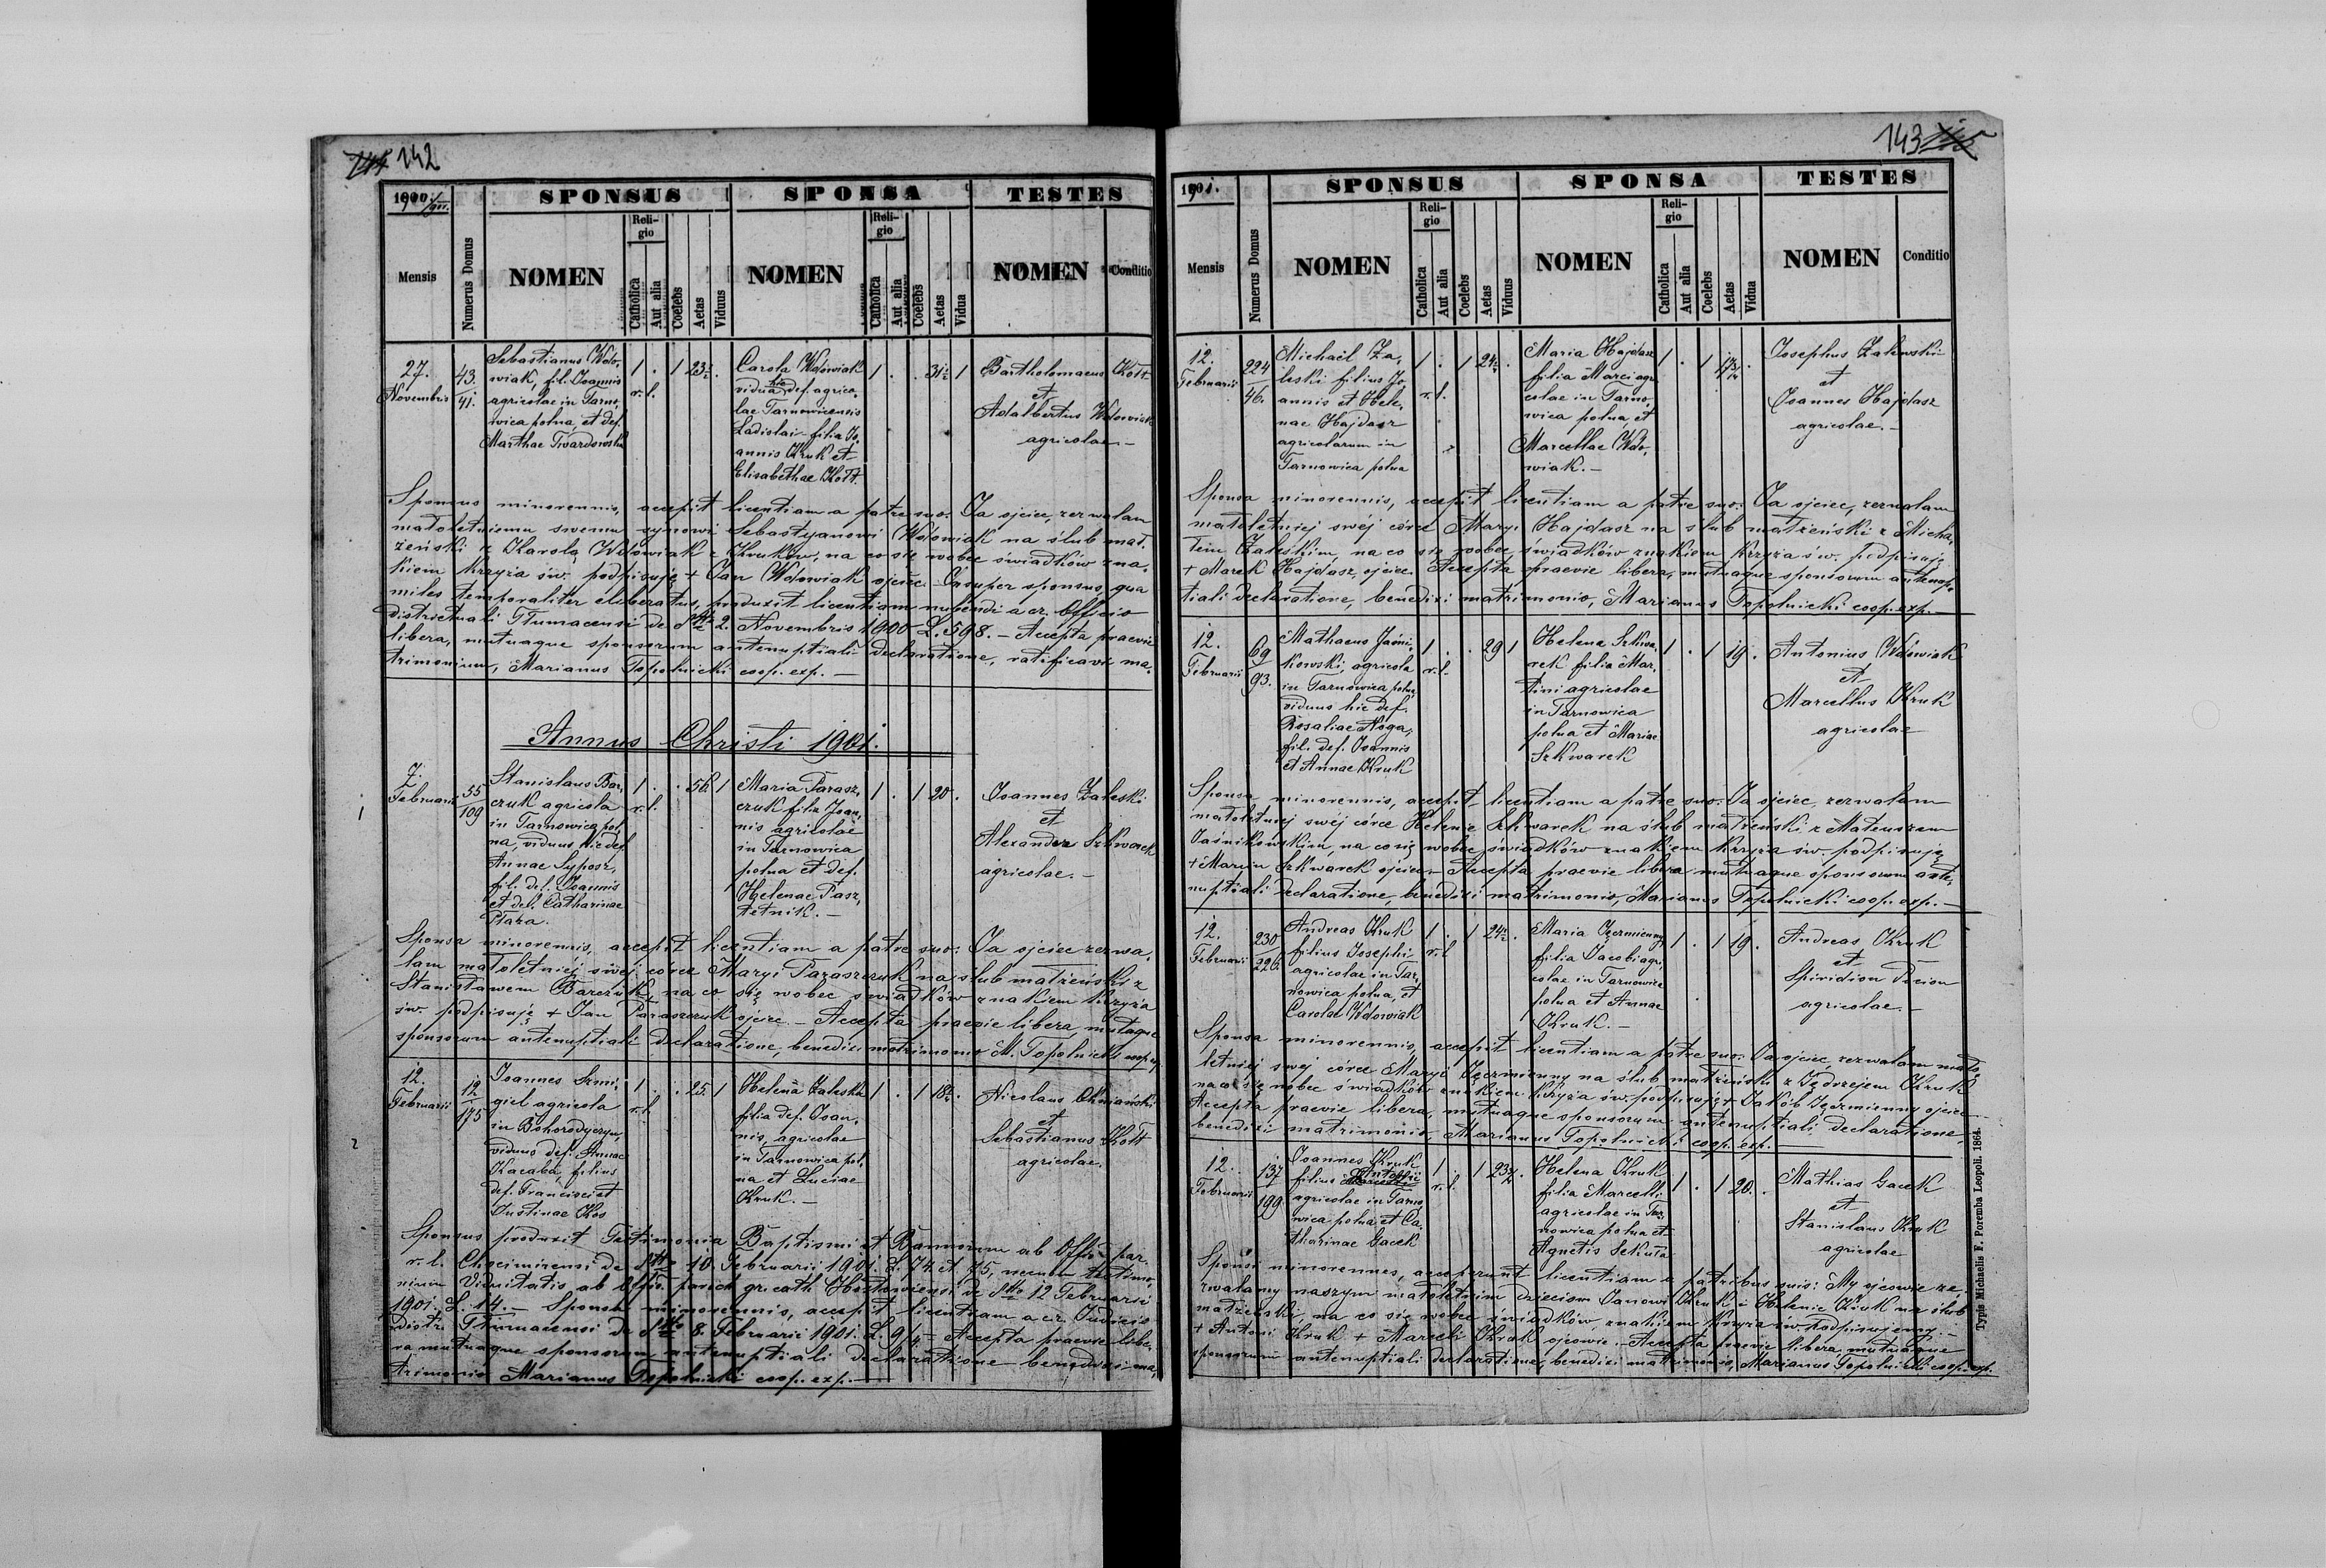 142
1900/901.
SPONSUS SPONSA TESTES
Mensis Numerus Domus NOMEN Religio Catholica Aut alia Coelebs Aetas Viduus NOMEN Religio Catholica Aut alia Coelebs Aetas Vidua NOMEN Conditio
27.
Novembris
43.
41.
Sebastianus Wdo,
wiak, fil. Joannis
agricolae in Tarno,
wica polna, et def.
Marthae Twardowska
1 . 1 23½ .
r. l.
Carola Wdowiak
vidua hic def. agrico,
lae Tarnowicensis
Ladislai – filia Jo,
annis Kruk et
Elisabethae Kott.
1 . . 31½ 1
Bartholomaeus Kott
et
Adalbertus Wdowiak
agricolae. –
Sponsus minorennis, accepit licentiam a patre suo: Ja ojciec, zezwalam
małoletniemu swemu synowi Sebastyanowi Wdowiak na ślub mał,
żeński z Karolą Wdowiak z Kruków, na co się wobec świadków zna,
kiem krzyża św. podpisuję + Jan Wdowiak ojciec. – Insuper sponsus, qua
miles temporaliter eliberatus, produxit licentiam nubendi a cr. Officio
districtuali Tłumacensi de dtto 2. Novembris 1900 L. 598. – Accepta praevie
libera, mutuaque sponsorum antenuptiali declaratione, ratificavi ma,
trimonium, Marianus Topolnicki coop. exp. –
Annus Christi 1901.
1
7.
Februarii
55
109
Stanislaus Bar,
czuk agricola
in Tarnowica pol,
na, viduus hic def.
Annae Syposz,
fil. def. Joannis
et def. Catharinae
Ptaza.
1 . . 56 1
r. l.
Maria Parasz,
czuk filia Joan,
nis agricolae
in Tarnowica
polna et def.
Helenae Pasz,
tetnik. –
1 . 1 20 .
Joannes Zaleski
et
Alexander Szkwarek
agricolae. –
Sponsa minorennis, accepit licentiam a patre suo: Ja ojciec zezwa,
lam małoletniej swej córce Maryi Paraszczuk na ślub małżeński z
Stanisławem Barczuk, na co się wobec świadków znakiem krzyża
św. podpisuję + Jan Paraszczuk ojciec. – Accepta praevie libera, mutuaque
sponsorum antenuptiali declaratione, benedixi matrimonio M. Topolnicki coop. exp.
2
12.
Februarii
12
175
Joannes Szmi,
giel agricola
in Bohorodyczyn,
viduus def. Annae
Kacaba, filius
def. Francisci et
Justinae Kos
1 . . 25. 1
r. l.
Helena Zaleska
filia def. Joan,
nis, agricolae
in Tarnowica pol,
na et Luciae
Kruk. –
1 . 1 18½ .
Nicolaus Okniański
et
Sebastianus Kott
agricolae.
Sponsus produxit Testimonia Baptismi et Bannorum ab Offio par.
r. l. Chocimirensi de dtto 10. Februarii 1901. L. 74. et 75, necnon testimo,
nium Viduitatis ab Offio. paroch. gr. cath. Hostowiensi de dtto 12 Februarii
1901. L. 14. – Sponsa minorennis, accepit licentiam a cr. Judicio
distr. Tłumacensi de dtto 8. Februarii 1901. L. 9/1 – Accepta praevie libe,
ra mutuaque sponsorum antenuptiali declaratione benedixi ma,
trimonio Marianus Topolnicki coop. exp. –
143
1901.
SPONSUS SPONSA TESTES
Mensis Numerus Domus NOMEN Religio Catholica Aut alia Coelebs Aetas Viduus NOMEN Religio Catholica Aut alia Coelebs Aetas Vidua NOMEN Conditio
12.
Februarii
224
46.
Michaël Za,
leski filius Jo,
annis et Hele,
nae Hajdasz
agricolarum in
Tarnowica polna
1 . 1 24½ .
r. l.
Maria Hajdasz
filia Marci agri,
colae in Tarno,
wica polna, et
Marcellae Wdo,
wiak. –
1 . 1
Josephus Zalewski
et
Joannes Hajdasz
agricolae. –
Sponsa minorennis, accepit licentiam a patre suo: Ja ojciec, zezwalam
małoletniej swéj córce Maryi Hajdasz na ślub małżeński z Micha,
łem Zaleskim, na co się wobec świadków znakiem krzyża św. podpisuję
+ Marek Hajdasz, ojciec. Accepta praevie libera, mutuaque sponsorum antenup,
tiali declaratione, benedixi matrimonio, Marianus Topolnicki coop. exp. –
12.
Februarii
69
93.
Mathaeus Jaśni,
kowski, agricola
in Tarnowica polna,
viduus hic def.
Rosaliae Noga,
fil. def. Joannis
et Annae Kruk
1 . . 29 1
r. l.
Helena Szkwa,
rek filia Mar,
tini agricolae
in Tarnowica
polna et Mariae
Szkwarek
1 . 1 19 .
Antonius Wdowiak
et
Marcellus Kruk
agricolae
Sponsa minorennis, accepit licentiam a patre suo: Ja ojciec, zezwalam
małoletniej swéj córce Helenie Szkwarek na ślub małżeński z Mateuszem
Jaśnikowskim, na co się wobec świadków znakiem krzyża św. podpisuję
+ Marcin Szkwarek ojciec – Accepta praevie libera mutuaque sponsorum ante,
nuptiali declaratione, benedixi matrimonio, Marianus Topolnicki coop. exp. –
12.
Februarii
230
220.
Andreas Kruk
filius Josephi
agricolae in Tar,
nowica polna, et
Carolae Wdowiak
1 . 1 24½ .
r. l.
Maria Jęczmienny
filia Jacobi agri,
colae in Tarnowica
polna et Annae
Kruk. –
1 . 1 19 .
Andreas Kruk
et
Spiridion
agricolae. –
Sponsa minorennis, accepit licentiam a patre suo: Ja ojciec, zezwalam mało,
letniej swej córce Maryi Jęczmienny na ślub małżeński z Jędrzejem Kruk
na co się wobec świadków znakiem krzyża św. podpisuję + Jakób Jęczmienny ojciec –
Accepta praevie libera, mutuaque sponsorum antenuptiali declaratione,
benedixi matrimonio, Marianus Topolnicki coop. exp.
12.
Februarii
137
199
Joannes Kruk
filius Antonii
agricolae in Tarno,
wica polna et Ca,
tharinae Gacek
1 . 1 23½ .
r. l.
Helena Kruk
filia Marcelli
agricolae in Tar,
nowica polna et
Agnetis Sekuła
1 . 1 20. .
Mathias Gacek
et
Stanislaus Kruk
agricolae
Sponsi minorennes, acceperunt licentiam a patribus suis: My ojcowie ze,
zwalamy naszym małoletnim dzieciom Janowi Kruk i Helenie Kruk na ślub
małżeński, na co się wobec świadków, znakiem krzyża św. podpisujemy. –
+ Antoni Kruk + Marceli Kruk ojcowie. – Accepta praevie libera, mutuaque
sponsorum antenuptiali declaratione, benedixi matrimonio, Marianus Topolnicki coop. exp.
Typis Michaelis F. Poremba Leopoli. 1864.